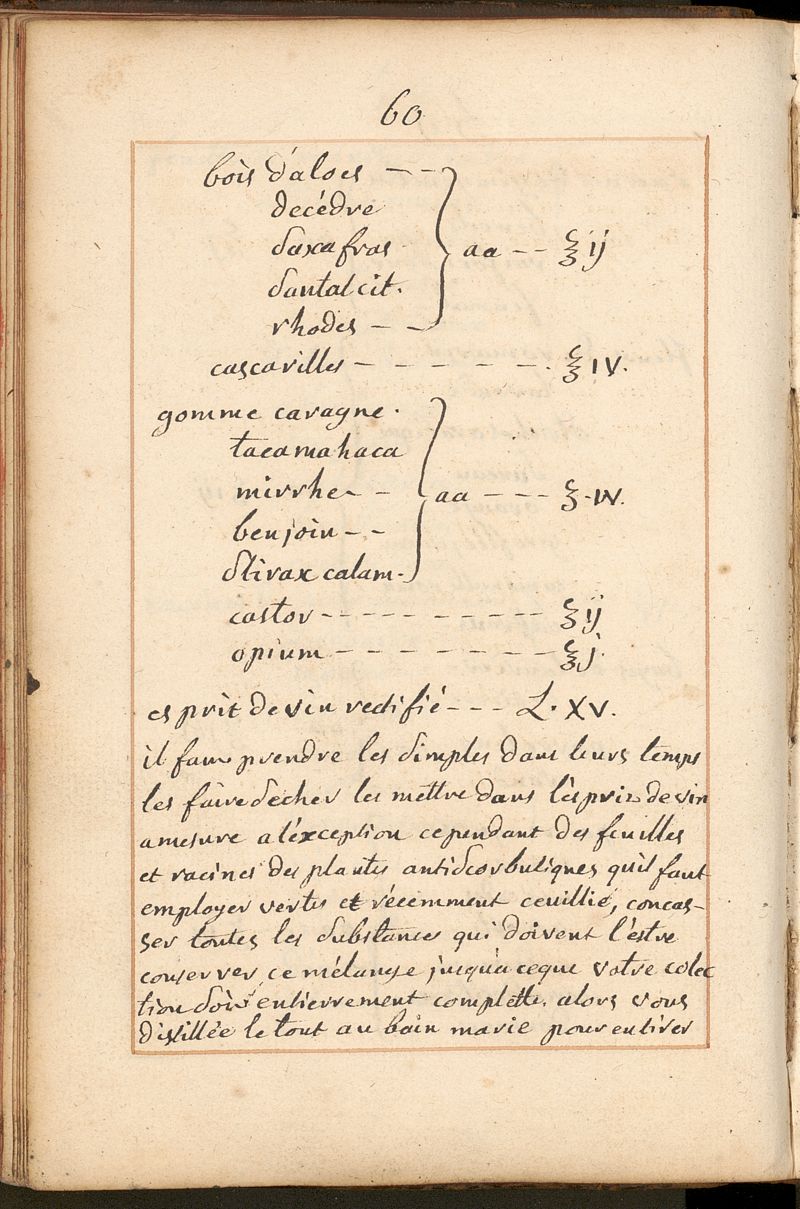 60
bois d'aloes - -
decédre
saxafras } aa - - ℥ ij
santal cit.
rhodes - -
cascarilles - - - - - . ℥ IV.
gomme caragne.
tacamahaca
mirrhe - - } aa - - - ℥ IV.
benjoin - -
stirax calam.
castor - - - - - - - - - ℥ ij
opium - - - - - - - - ℥ j.
esprit de vin rectifié - - - L. XV.
il faut prendre les simples dans leurs temps
les faire secher les mettre dans l'esprit de vin
amesure a l'éxception cependant des feuilles
et racines des plantes antiscorbutiques qu'il faut
employer vertes et récemment ceuillie, concas-
ser toutes les substances qui doivent l'estre
conserver ce mélange jusqu'a ceque votre colec
tion soit entierrement complette. alors vous
distillée le tout au bain marie pour entirer